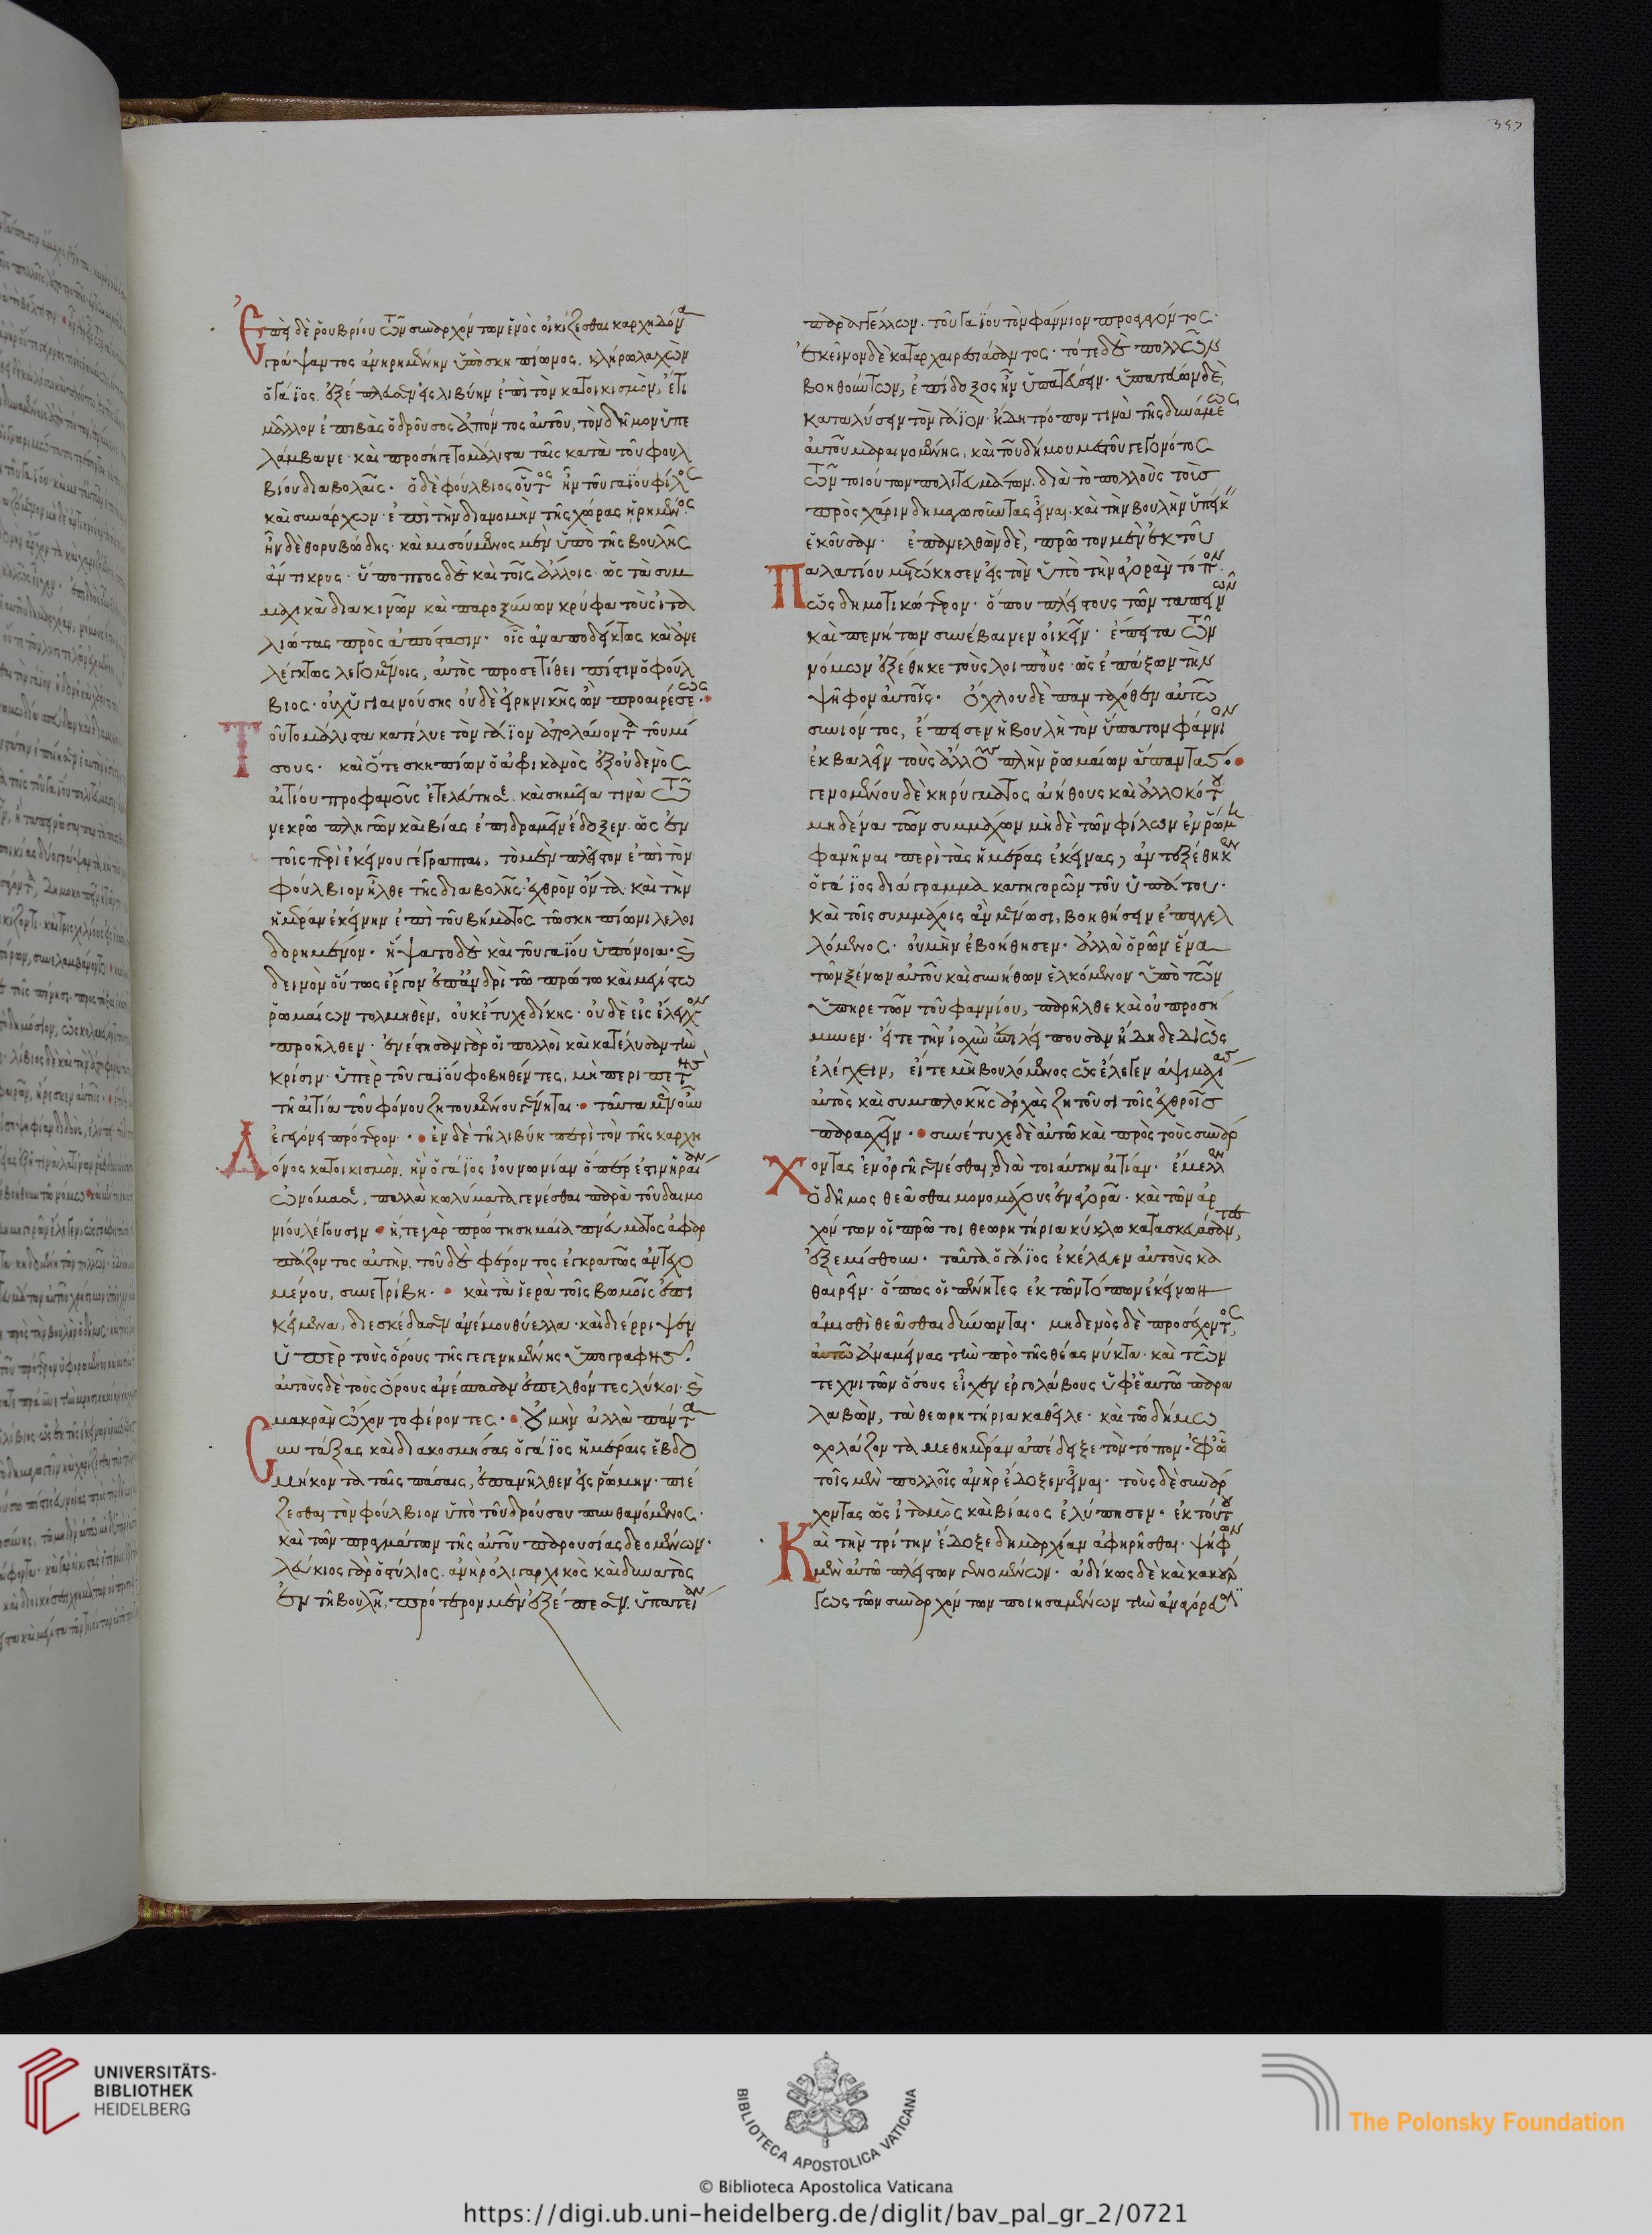 Ἐπεὶ δὲ ῥουβρίου τῶν συναρχόντων ἑνὸς οἰκίζεσθαι καρχηδόνα
γράψαντος ἀνηρημένην ὑπὸ σκηπίωνος, κλήρω λαχὼν
ὁ γάϊος, ἐξέπλευσεν εἰς λιβύην ἐπὶ τὸν κατοικισμὸν, ἔτι
μᾶλλον ἐπιβὰς ὁ δροῦσος ἀπόντος αὐτοῦ, τὸν δῆμον ὑπε
λάμβανε· καὶ προσήγετο μάλιστα ταῖς κατὰ τοῦ φουλ
βίου διαβολαῖς. ὁ δὲ φούλβιος οὗτος ἦν τοῦ γαΐου φίλος
καὶ συνάρχων· ἐπὶ τὴν διανομὴν τῆς χώρας ἡρημένος·
ἦν δὲ θορυβώδης· καὶ μισούμενος μὲν ὑπὸ τῆς βουλῆς
ἄντικρυς· ὕποπτος δὲ καὶ τοῖς ἄλλοις· ὡς τὰ συμ
μαχικὰ διακινῶν καὶ παροξύνων κρύφα τοὺς ἰτα
λιώτας πρὸς ἀπόστασιν· οἷς ἀναποδείκτως καὶ ἀνε
λέγκτως λεγομένοις, αὐτὸς προσετίθει πίστιν ὁ φούλ
βιος· οὐχ ὑγιαινούσης οὐδὲ εἰρηνικῆς ὢν προαιρέσεως·
Τοῦτο μάλιστα κατέλυε τὸν γάϊον ἀπολαύοντα τοῦ μί
σους· καὶ ὅτε σκηπίων ὁ ἀφρικανὸς ἐξ οὐδενὸς
αἰτίου προφανοῦς ἐτελεύτησε, καὶ σημεῖα τινὰ τῶ
νεκρῶ πληγῶν καὶ βίας ἐπιδραμεῖν ἔδοξεν· ὡς ἐν
τοῖς περὶ ἐκείνου γέγραπται, τὸ μὲν πλεῖστον ἐπὶ τὸν
φούλβιον ἦλθε τῆς διαβολῆς· ἐχθρὸν ὄντα· καὶ τὴν
ἡμέραν ἐκείνην ἐπὶ τοῦ βήματος τῶ σκηπίωνι λελοι
δορημένον· ἥψατο δὲ καὶ τοῦ γαΐου ὑπόνοια· καὶ
δεινὸν οὕτως ἔργον ἐπ' ἀνδρὶ τῶ πρώτω καὶ μεγίστω
ῥωμαίων τολμηθὲν, οὐκ ἔτυχε δίκης· οὐδὲ εἰς ἔλεγχον
προῆλθεν· ἐνέστησαν γὰρ οἱ πολλοὶ καὶ κατέλυσαν τὴν
κρίσιν· ὑπὲρ τοῦ γαΐου φοβηθέντες, μὴ περιπετὴς
τῆ αἰτία τοῦ φόνου ζητουμένου γένηται· ταῦτα μὲν οὖν
ἐγεγόνει πρότερον· ἐν δὲ τῆ λιβύη περὶ τὸν τῆς καρχη
Δόνος κατοικισμὸν, ἣν ὁ γάϊος ἰουνωνίαν ὅπερ ἐστὶν ἡραίαν
ὠνόμασε, πολλὰ κωλύματα γενέσθαι παρὰ τοῦ δαιμο
νίου λέγουσιν· ἥ, τε γὰρ πρώτη σημαία πνεύματος ἀφαρ
πάζοντος αὐτὴν, τοῦ δὲ φέροντος ἐγκρατῶς ἀντεχο
μένου, συνετρίβη· καὶ τὰ ἱερὰ τοῖς βωμοῖς ἐπι
κείμενα, διεσκέδασεν ἀνέμου θύελλα· καὶ διέρριψεν
ὑπὲρ τοὺς ὅρους τῆς γεγενημένης ὑπογραφῆς·
αὐτοὺς δὲ τοὺς ὅρους ἀνέσπασαν ἐπελθόντες λύκοι· καὶ
μακρὰν ὤχοντο φέροντες· οὐ μὴν ἀλλὰ πάντα
Συντάξας καὶ διακοσμήσας ὁ γάϊος ἡμέραις ἑβδο
μήκοντα ταῖς πάσαις, ἐπανῆλθεν εἰς ῥώμην· πιέ
ζεσθαι τὸν φούλβιον ὑπὸ τοῦ δρούσου πυνθανόμενος·
καὶ τῶν πραγμάτων τῆς αὐτοῦ παρουσίας δεομένων·
λεύκιος γὰρ ὁστίλιος, ἀνὴρ ὀλιγαρχικὸς καὶ δυνατὸς
ἐν τῆ βουλῆ, πρότερον μὲν ἐξέπεσεν, ὑπατείαν
παραγγέλλων, τοῦ γαΐου τὸν φάννιον προάγοντος·
ἐκεῖνον δὲ καταρχαιρεσιάσαντος· τότε δὲ πολλῶν
βοηθούντων, ἐπίδοξος ἦν ὑπατεύσειν· ὑπατεύων δὲ,
καταλύσειν τὸν γάϊον· ἤδη τρόπον τινὰ τῆς δυνάμεως
αὐτοῦ μαραινομένης, καὶ τοῦ δήμου μεστοῦ γεγονότος
τῶν τοιούτων πολιτευμάτων· διὰ τὸ πολλοὺς τοὺς
πρὸς χάριν δημαγωγοῦντας εἶναι· καὶ τὴν βουλὴν ὑπείκειν
ἑκοῦσαν· ἐπανελθὼν δὲ, πρῶτον μὲν ἐκ τοῦ
Παλατίου μετώκησεν εἰς τὸν ὑπὸ τὴν ἀγορὰν τόπον·
ὡς δημοτικώτερον· ὅπου πλείστους τῶν ταπεινῶν
καὶ πενήτων συνέβαινεν οἰκεῖν· ἔπειτα τῶν
νόμων ἐξέθηκε τοὺς λοιποὺς· ὡς ἐπάξων τὴν
ψῆφον αὐτοῖς· ὄχλου δὲ πανταχόθεν αὐτῶ
συνιόντος, ἔπεισεν ἡ βουλὴ τὸν ὕπατον φάννιον
ἐκβαλεῖν τοὺς ἄλλους πλὴν ῥωμαίων ἅπαντας·
γενομένου δὲ κηρύγματος ἀήθους καὶ ἀλλοκότου
μηδένα τῶν συμμάχων μὴ δὲ τῶν φίλων ἐν ῥώμη
φανῆναι περὶ τὰς ἡμέρας ἐκείνας, ἀντεξέθηκεν
ὁ γάϊος διάγραμμα κατηγορῶν τοῦ ὑπάτου·
καὶ τοῖς συμμάχοις ἂν μένωσι, βοηθήσειν ἐπαγγελ
λόμενος· οὐ μὴν ἐβοήθησεν· ἀλλὰ ὁρῶν ἕνα
τῶν ξένων αὐτοῦ καὶ συνήθων ἑλκόμενον ὑπὸ τῶν
ὑπηρετῶν τοῦ φαννίου, παρῆλθε καὶ οὐ προσή
μυνεν· εἴτε τὴν ἰσχὺν ἐπιλείπουσαν ἤδη δεδιὼς
ἐλέγχειν, εἴτε μὴ βουλόμενος ὡς ἔλεγεν ἁψιμαχίας
αὐτὸς καὶ συμπλοκῆς ἀρχὰς ζητοῦσι τοῖς ἐχθροῖς
παρασχεῖν· συνέτυχε δὲ αὐτῶ καὶ πρὸς τοὺς συνάρ
Χοντας ἐν ὀργῆ γενέσθαι, διὰ τοιαύτην αἰτίαν· ἔμελλεν
ὁ δῆμος θεᾶσθαι μονομάχους ἐν ἀγορᾶ· καὶ τῶν ἀρ
χόντων οἱ πρῶτοι θεωρητήρια κύκλω κατασκευάσαντες,
ἐξεμίσθουν· ταῦτα ὁ γάϊος ἐκέλευεν αὐτοὺς κα
θαιρεῖν· ὅπως οἱ πένητες ἐκ τῶν τόπων ἐκείνων
ἀμισθὶ θεᾶσθαι δύνωνται· μηδενὸς δὲ προσέχοντος,
αὐτῶ ἀναμείνας τὴν πρὸ τῆς θέας νύκτα· καὶ τῶν
τεχνιτῶν ὅσους εἶχεν ἐργολάβους ὑφ' ἑαυτῶ παρα
λαβὼν, τὰ θεωρητήρια καθεῖλε· καὶ τῶ δήμω
σχολάζοντα μεθημέραν ἀπέδειξε τὸν τόπον· ἐφ' ὧ
τοῖς μὲν πολλοῖς ἀνὴρ ἔδοξεν εἶναι· τοὺς δὲ συνάρ
χοντας ὡς ἰταμὸς καὶ βίαιος ἐλύπησεν· ἐκ τούτου
Καὶ τὴν τρίτην ἔδοξε δημαρχίαν ἀφηρῆσθαι· ψήφων
μὲν αὐτῶ πλείστων γενομένων· ἀδίκως δὲ καὶ κακούρ
γως τῶν συναρχόντων ποιησαμένων τὴν ἀναγόρευσιν
UNIVERSITÄTS-
BIBLIOTHEK
HEIDELBERG
BIBLIOTECA APOSTOLICA VATICANA
The Polonsky Foundation
© Biblioteca Apostolica Vaticana
https://digi.ub.uni-heidelberg.de/diglit/bav_pal_gr_2/0721